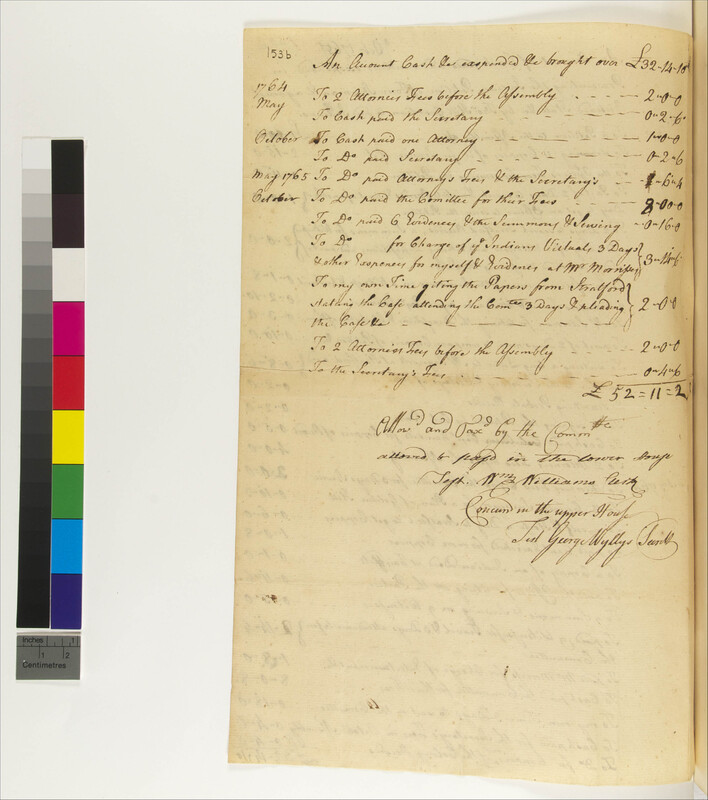 153b
An Account Cash &c expended &c brought over £32-14-10
1764
May To 2 Attornies Fees before the Assembly 2-0-0
To Cash paid the Secretary 0-2-6
October To Cash paid one Attorney 1-0-0
To Do paid Secretary 0-2-6
May 1765 To Do paid Attorneys Fees & the Secretary's 1-6-4
October To Do paid the Comittee for their Fees 8-00-0
To Do paid 6 Evidences & the Summons & Serving 0-16-0
To Do for Charge of ye Indians Victuals 3 Days
& other Expences for myself & Evidences at Mr 3-14-6
To my own Time giting the Papers from Stratford
stateing the Case attending the Comtee 3 Days & pleading 2-0-0
the Case &c
To 2 Attornies Fees before the Assembly 2-0-0
To the Secretary's Fees 0-4-6
£ 52=11=2
Allowd and Taxd by the Comm
allowed & passd in the lower house
Test. Wm Williams Clerk
Concurd in the upper House
Test George Wyllys Secret
Inches 1
1 2
Centimetres